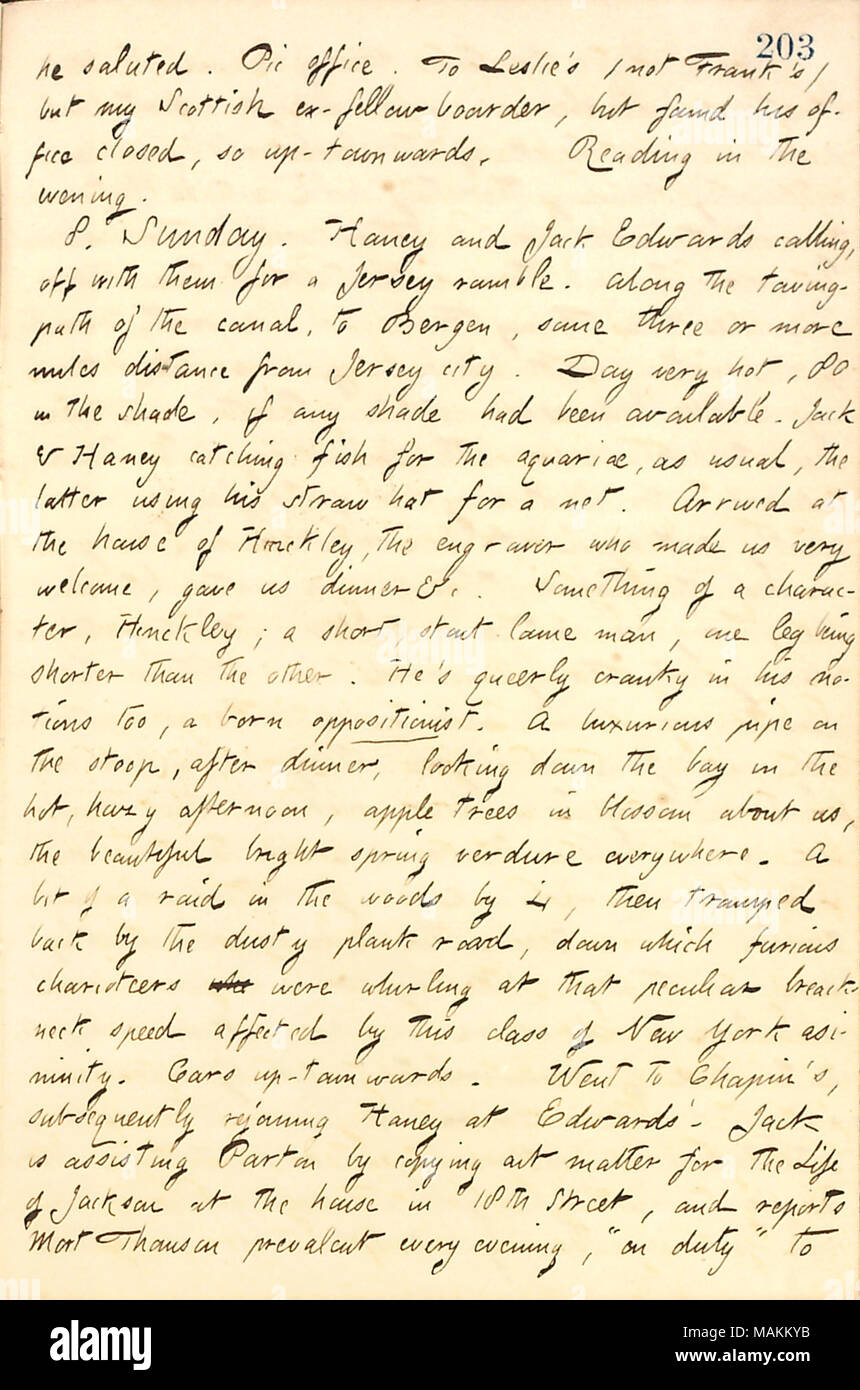 203
he saluted. Pic office. To Leslie's (not Frank's)
but my Scottish ex-fellow boarder, but found his of-
fice closed, so up-townwards. Reading in the
evening.
8. Sunday. Haney and Jack Edwards calling,
off with them for a Jersey ramble. Along the towing-
path of the canal, to Bergen, some three or more
miles distance from Jersey city. Day very hot, 80
in the shade, if any shade had been available. Jack
& Haney catching fish for the aquariæ, as usual, the
latter using his straw hat for a net. Arrived at
the house of Hinckley, the engraver who made us very
welcome, gave us dinner &c. Something of a charac-
ter, Hinckley; a short, stout lame man, one leg being
shorter than the other. He's queerly cranky in his no-
tions too, a born oppositionist. A luxurious pipe on
the stoop, after dinner, looking down the bay in the
hot, hazy afternoon, apple trees in blossom about us,
the beautiful bright spring verdure everywhere. A
bit of a raid in the woods by 4, then tramped
back by the dusty plank road, down which furious
charioteers who were whirling at that peculiar break-
neck speed affected by this class of New York asi-
ninity. Cars up-townwards. Went to Chapin's,
subsequently rejoining Haney at Edwards'. Jack
is assisting Parton by copying out matter for the Life
of Jackson at the house in 18th Street, and reports
Mort Thomson prevalent every evening, "on duty" to
alamy
Image ID: MAKKYB
www.alamy.com